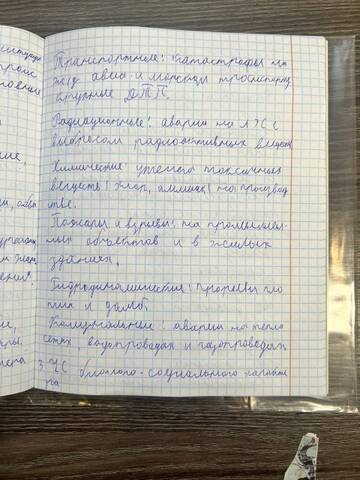 Транспортные: катастрофы на
ж/д, авиа- и морском транспорте,
крупные ДТП.
Радиационные: аварии на АЭС с
выбросом радиоактивных веществ
Химические: утечка токсичных
веществ (хлор, аммиак) на производ
стве.
Пожары и взрывы: на промышлен-
ных объектов и в жилых
зданиях.
Гидродинамические: прорывы пло
тин и дамб.
Коммунальные: аварии на тепло
сетях, водопроводах и газопроводах
3. ЧС биолого-социального характе
ра